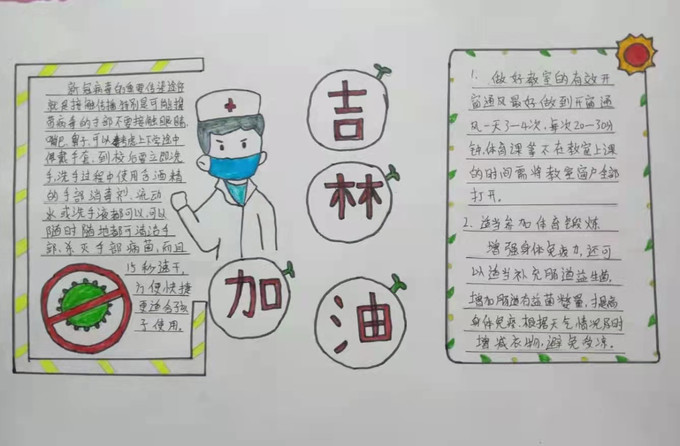 新冠病毒的重要传染途径
就是接触传播特别是可能接
有病毒的手部不要接触眼睛,
嘴巴,鼻子,可以考虑上下学途中
佩戴手套,到校后要立即洗
手,洗手过程中使用含酒精
的手部消毒剂,流动
水或洗手液都可以,可以
随时随地都可清洁手
部,杀灭手部病菌,而且
15秒速干,
方便快捷
更适合孩
子使用。
吉
林
加
油
1. 做好教室的有效开
窗通风最好做到开窗通
风一天3-4次,每次20-30分
钟,体育课等不在教室上课
的时间需将教室窗户全部
打开。
2. 适当参加体育锻炼
增强身体免疫力,还可
以适当补充肠道益生菌,
增加肠道有益菌数量,提高
身体免疫,根据天气情况及时
增减衣物,避免受凉。